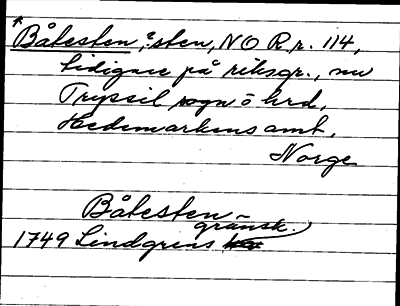 *Båtesten, ?sten, NO R.r. 114,
tidigare på riksgr., nu
Tryssil sogn o hrd,
Hedemarkens amt,
Norge
Båtesten –
1749 Lindgrens gränsk.)